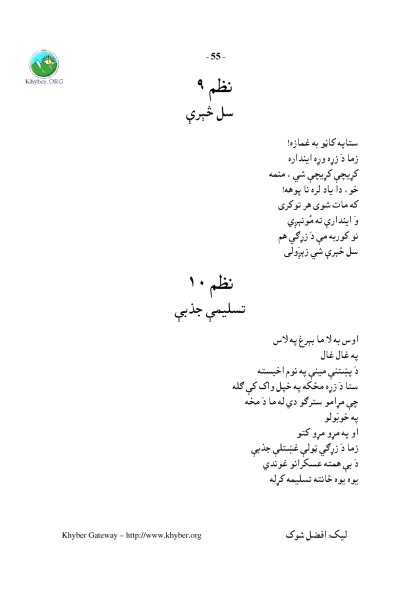 Khyber.ORG
- 55 -
نظم ۹
سل څېرې
ستا په کاڼو به غمازه!
زما دَ زړه وړه اينداره
کړيچې کړيچې شي ، منمه
خو، دا ياد لره نا پوهه!
که مات شوى هر ټوکرى
وَ ايندارې ته مُونېږي
نو کوربه مې دَ زړګي هم
سل څېرې شي زېږَولى
نظم ۱۰
تسليمې جذبې
اوس به لا ما بېرغ په لاس
په غال غال
دَ پښتنې مينې په نوم اخيسته
ستا دَ زړه مځکه په خپل واک کې ګله
چې مړامو سترګو دي له ما دَ مخه
په خوبَولو
او په مړو مړو کتو
زما دَ زړګي ټولې غښتلې جذبې
دَ بې همته عسکرانو غوندې
يوه يوه ځانته تسليمه کړله
Khyber Gateway – http://www.khyber.org
ليک: افضل شوک